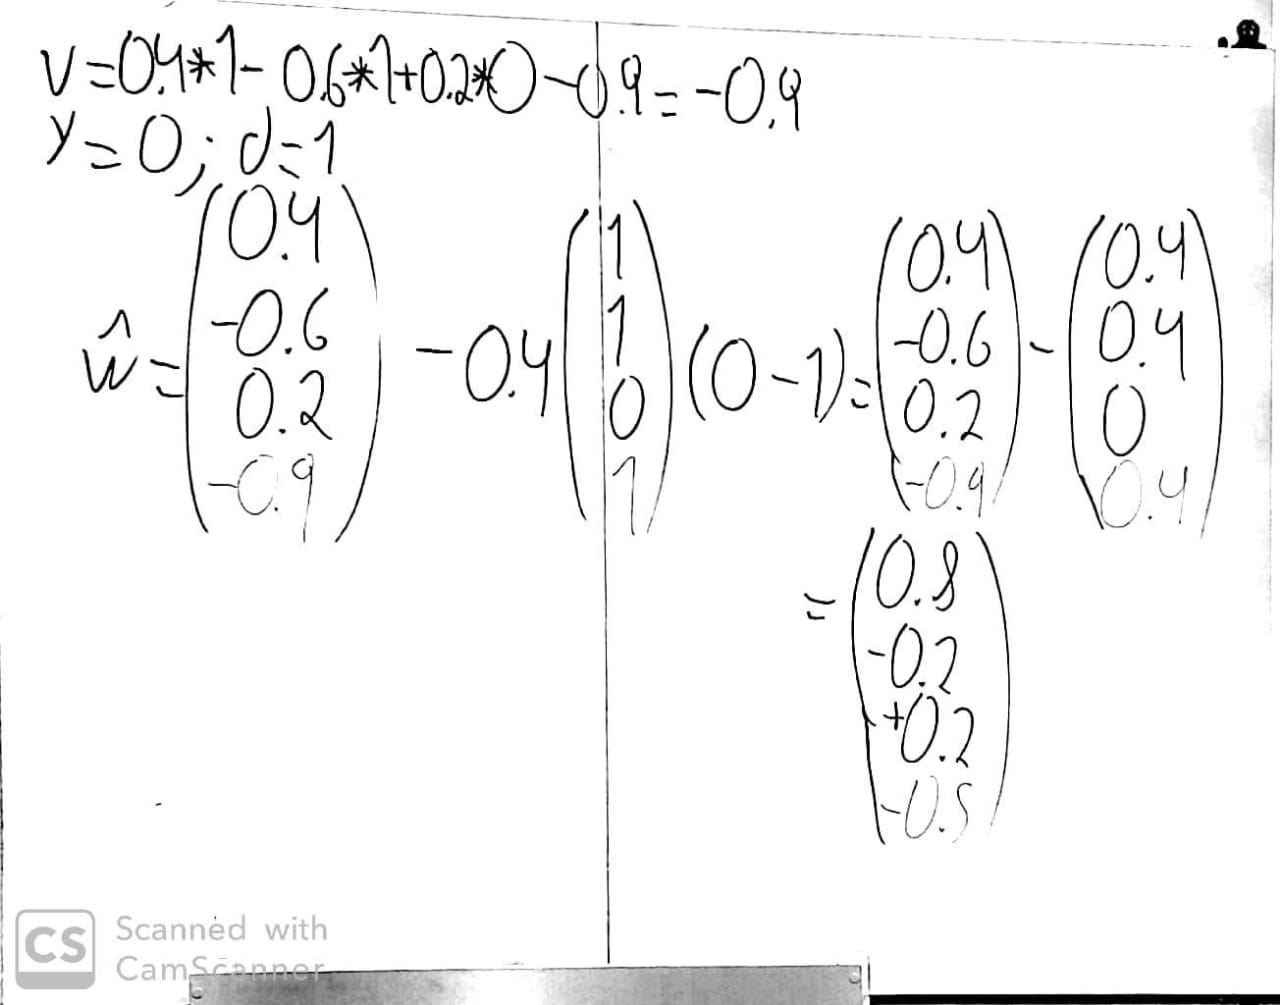 V=0.4*1-0.6*1+0.2*0-0.9=-0.9
y=0; d=1
ŵ=(0.4 -0.6 0.2 -0.9) -0.4(1 1 0 1)(0-1)=(0.4 -0.6 0.2 -0.9)-(0.4 0.4 0 0.4)
=(0.8 -0.2 +0.2 -0.5)
CS Scanned with
CamScanner